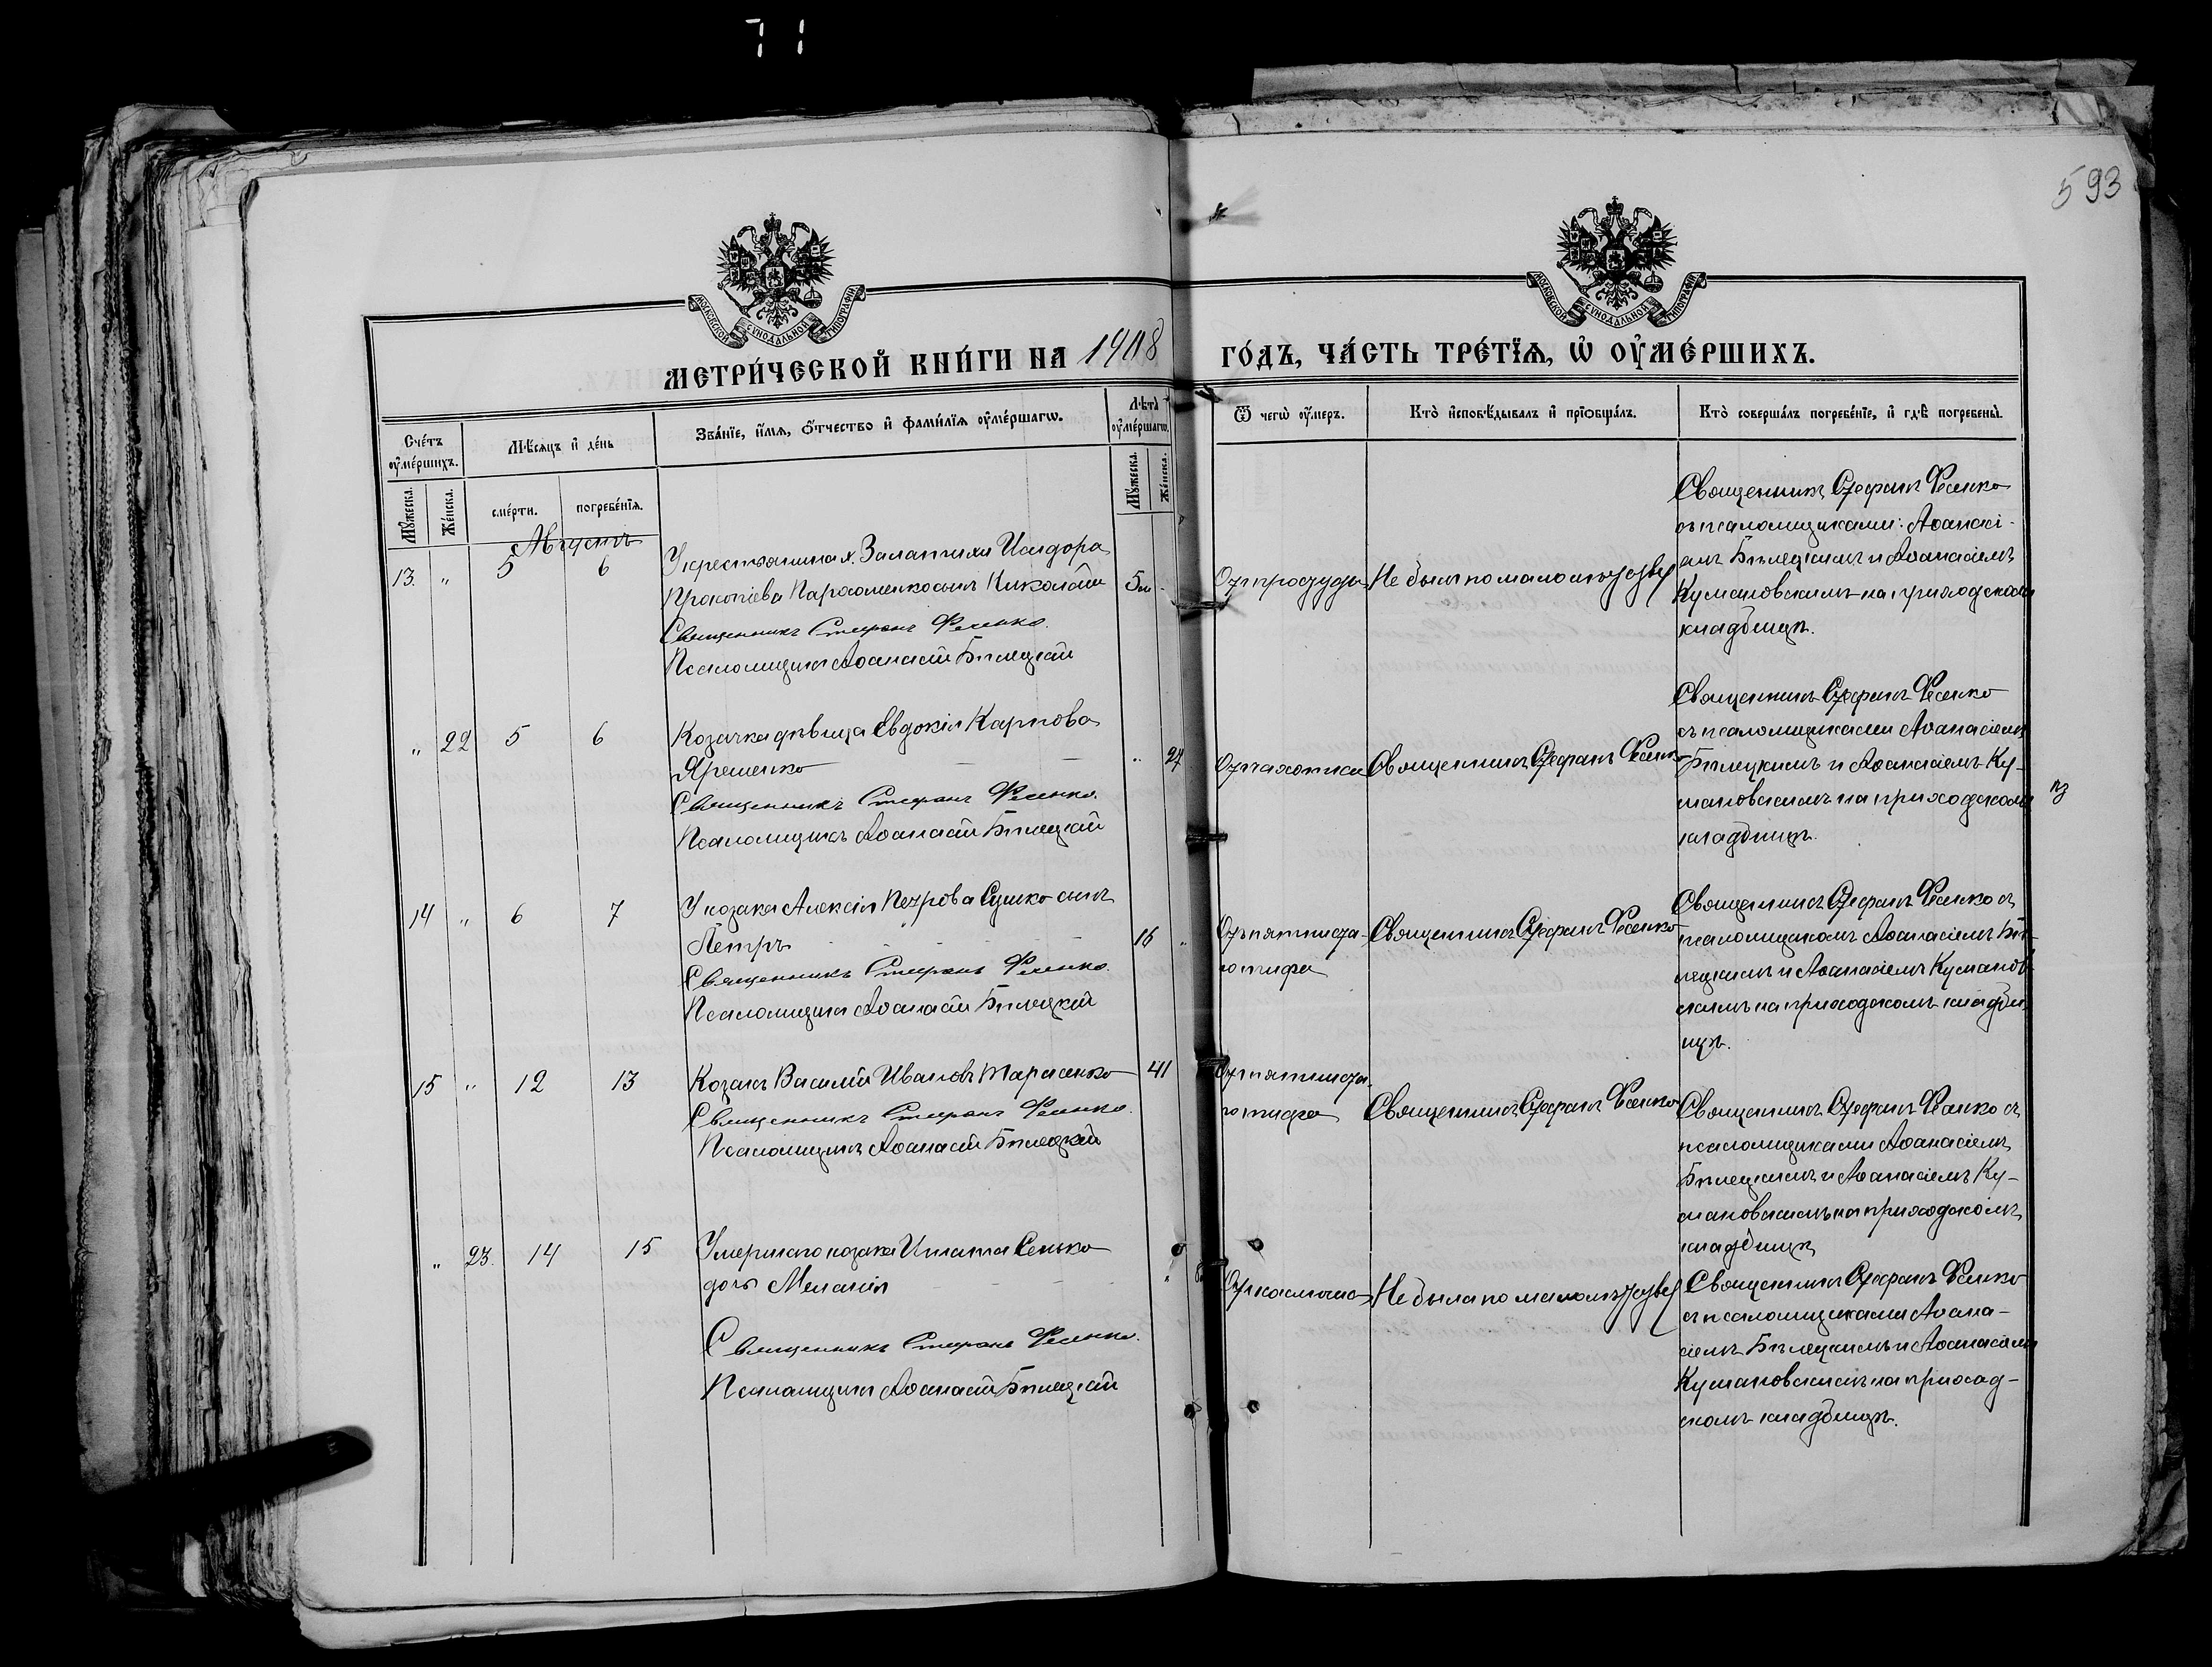 71
593
МОСКОВСКОЙ СѴНОДАЛЬНОЙ ТИПОГРАФІИ
МОСКОВСКОЙ СѴНОДАЛЬНОЙ ТИПОГРАФІИ
МЕТРИ́ЧЕСКОЙ КНИ́ГИ НА 1908 ГО́ДЪ, ЧА́СТЬ ТРЕ́ТЇѦ, Ѡ҆ ОУ҆МЕ́РШИХЪ.
Сче́тъ оу҆ме́ршихъ.
Мѣ́сяцъ и҆ де́нь
Зва́нїе, и҆́мѧ, ѻ҆́тчество и҆ фами́лїѧ оу҆ме́ршагѡ.
Лѣ́та оу҆ме́ршагѡ.
Ѿ чегѡ̀ оу҆́меръ.
Кто̀ и҆сповѣ́дывалъ и҆ прїѡбща́лъ.
Кто̀ соверша́лъ погребе́нїе, и҆ гдѣ̀ погребены̀.
Мꙋ́жеска.
Же́нска.
сме́рти.
погребе́нїѧ.
Мꙋ́жеска.
Же́нска.
Августъ
13. " 5 6
У крестьянина х. Исидора
Прокопіева Пархоменко сынъ Николай
Священникъ Стефанъ Фесенко.
Псаломщикъ Аѳанасій Бѣлецкій
5м -
Отъ простуды
Не былъ по малолѣтству
Священникъ Стефанъ Фесенко
съ псаломщиками: Аѳанасі-
емъ Бѣлецкимъ и Аѳанасіемъ
Кумановскимъ на приходскомъ
кладбищѣ.
" 22 5 6
Козачка дѣвица Евдокія Карпова
Яременко
Священникъ Стефанъ Фесенко.
Псаломщикъ Аѳанасій Бѣлецкій
" 27
Отъ чахотки
Священникъ Стефанъ Фесенко
Священникъ Стефанъ Фесенко
съ псаломщиками Аѳанасіемъ
Бѣлецкимъ и Аѳанасіемъ Ку-
мановскимъ на приходскомъ
кладбищѣ.
14 " 6 7
У козака Алексія Петрова Сушко сынъ
Петръ
Священникъ Стефанъ Фесенко.
Псаломщикъ Аѳанасій Бѣлецкій
16 "
Отъ пятниста-
го тифа
Священникъ Стефанъ Фесенко
Священникъ Стефанъ Фесенко съ
псаломщикомъ Аѳанасіемъ Бѣ-
лецкимъ и Аѳанасіемъ Куманов-
скимъ на приходскомъ кладби-
щѣ.
15 " 12 13
Козакъ Василій Ивановъ Тарасенко
Священникъ Стефанъ Фесенко.
Псаломщикъ Аѳанасій Бѣлецкій
41
Отъ пятниста-
го тифа
Священникъ Стефанъ Фесенко
Священникъ Стефанъ Фесенко съ
псаломщиками Аѳанасіемъ
Бѣлецкимъ и Аѳанасіемъ Ку-
мановскимъ на приходскомъ
кладбищѣ
" 23. 14 15
Умершаго козака Игната Сенько
дочь Меланія
Священникъ Стефанъ Фесенко.
Псаломщикъ Аѳанасій Бѣлецкій
Не была по малолѣтству
Священникъ Стефанъ Фесенко
съ псаломщиками Аѳана-
сіемъ Бѣлецкимъ и Аѳанасіемъ
Кумановскимъ на приход-
скомъ кладбищѣ.